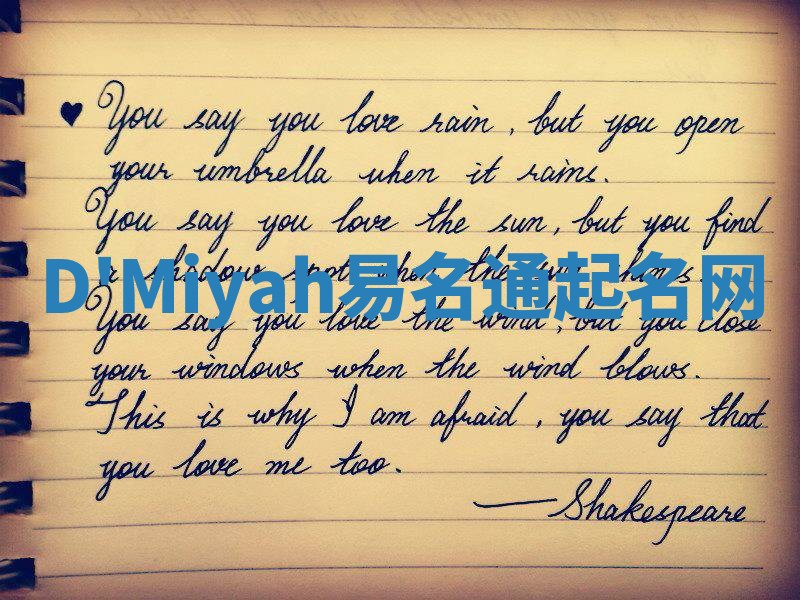 You say you love rain, but you open
your umbrella when it rains.
You say you love the sun, but you find
a shadow spot when the sun shines.
D'Miyah易名通起名网
You say you love the wind, but you close
your windows when the wind blows.
This is why I am afraid, you say that
you love me too.
—Shakespeare